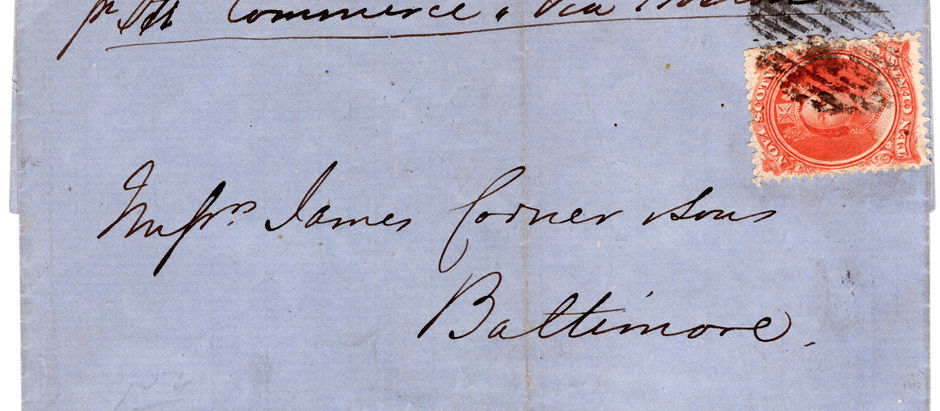 pr Str Commerce, via
Messrs James Corner & Sons
Baltimore.
NOVA SCOTIA
TEN CENTS